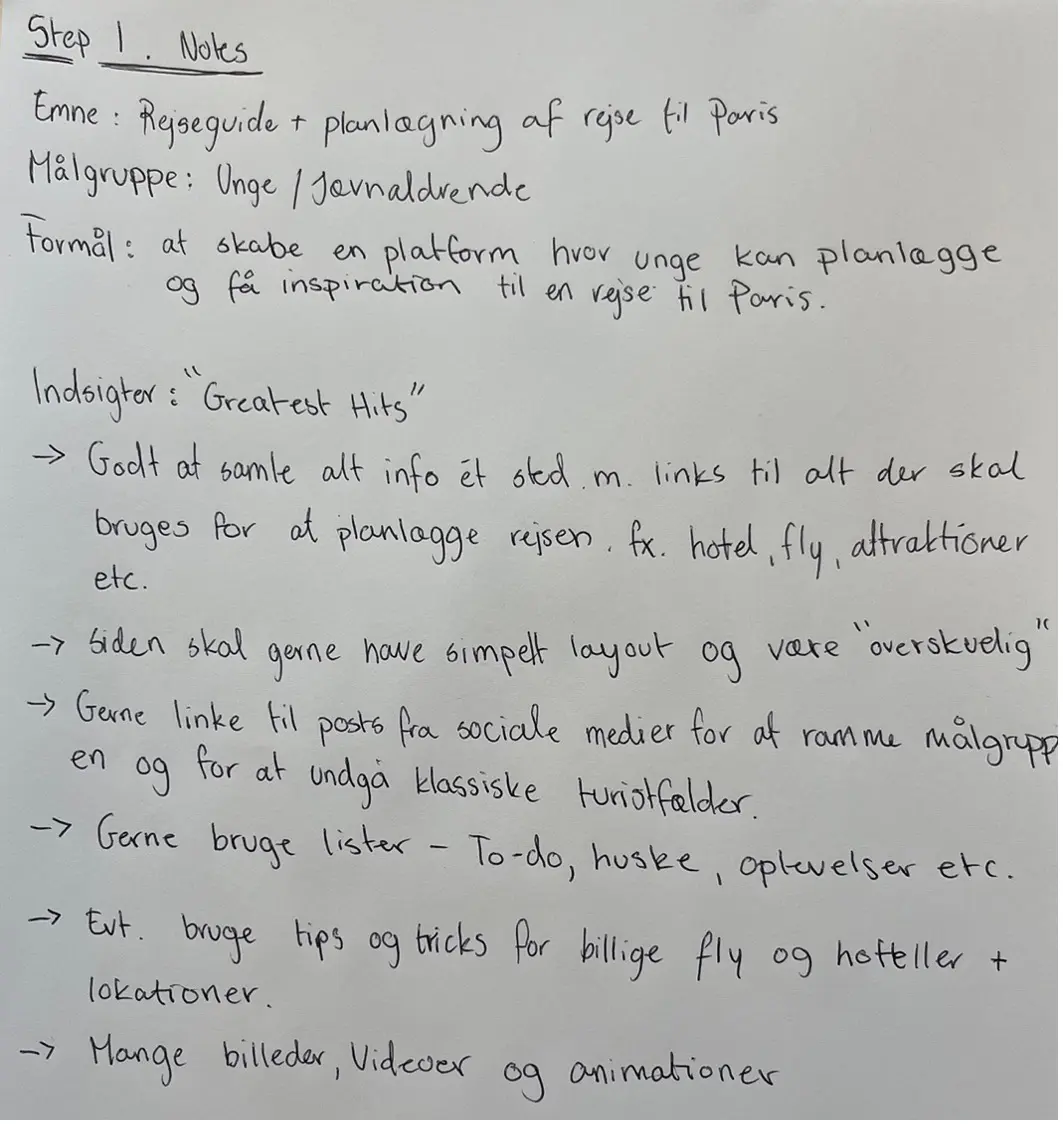 Step 1. Notes
Emne: Rejseguide + planlægning af rejse til Paris
Målgruppe: Unge / Jævnaldrende
Formål: at skabe en platform hvor unge kan planlægge
og få inspiration til en rejse til Paris.
Indsigter: "Greatest Hits"
→ Godt at samle alt info ét sted m. links til alt der skal
bruges for at planlægge rejsen. fx. hotel, fly, attraktioner
etc.
→ Siden skal gerne have simpelt layout og være "overskuelig"
→ Gerne linke til posts fra sociale medier for at ramme målgrupp
en og for at undgå klassiske turistfælder.
→ Gerne bruge lister - To-do, huske, oplevelser etc.
→ Evt. bruge tips og tricks for billige fly og hoteller +
lokationer.
→ Mange billeder, Videoer og animationer